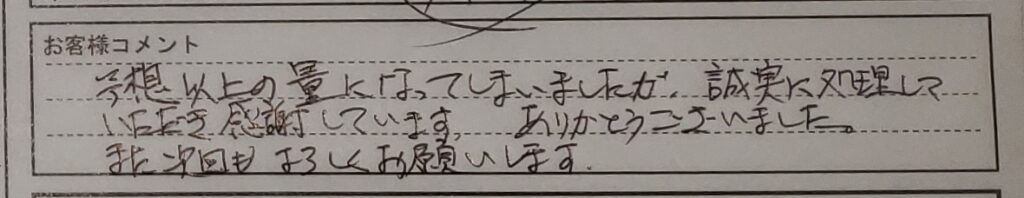 お客様コメント
予想以上の量になってしまいましたが、誠実に処理して
いただき感謝しています。ありがとうございました。
また次回もよろしくお願いします.